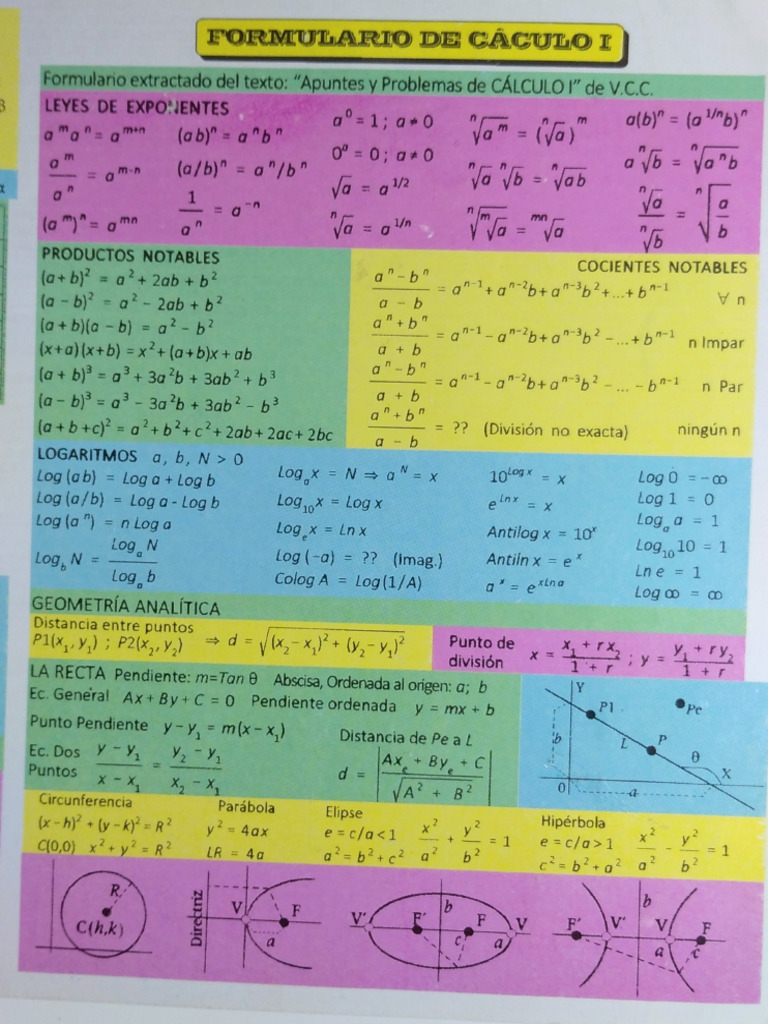 FORMULARIO DE CÁCULO I
Formulario extractado del texto: "Apuntes y Problemas de CÁLCULO I" de V.C.C.
LEYES DE EXPONENTES
a^m a^n = a^(m+n)   (ab)^n = a^n b^n   a^0 = 1 ; a ≠ 0   ⁿ√(a^m) = (ⁿ√a)^m   a(b)^n = (a^(1/n) b)^n
a^m / a^n = a^(m-n)   (a/b)^n = a^n / b^n   0^a = 0 ; a ≠ 0   ⁿ√a ⁿ√b = ⁿ√(ab)   a ⁿ√b = ⁿ√(a^n b)
(a^m)^n = a^(mn)   1 / a^n = a^(-n)   √a = a^(1/2)   ⁿ√(ᵐ√a) = ᵐⁿ√a   ⁿ√a / ⁿ√b = ⁿ√(a/b)
ⁿ√a = a^(1/n)
PRODUCTOS NOTABLES
(a + b)² = a² + 2ab + b²
(a − b)² = a² − 2ab + b²
(a + b)(a − b) = a² − b²
(x+a)(x+b) = x² + (a+b)x + ab
(a + b)³ = a³ + 3a²b + 3ab² + b³
(a − b)³ = a³ − 3a²b + 3ab² − b³
(a + b + c)² = a² + b² + c² + 2ab + 2ac + 2bc
COCIENTES NOTABLES
(a^n − b^n) / (a − b) = a^(n−1) + a^(n−2)b + a^(n−3)b² + ... + b^(n−1)   ∀ n
(a^n + b^n) / (a + b) = a^(n−1) − a^(n−2)b + a^(n−3)b² − ... + b^(n−1)   n Impar
(a^n − b^n) / (a + b) = a^(n−1) − a^(n−2)b + a^(n−3)b² − ... − b^(n−1)   n Par
(a^n + b^n) / (a − b) = ?? (División no exacta)   ningún n
LOGARITMOS a, b, N > 0
Log (ab) = Log a + Log b   Log_a x = N ⇒ a^N = x   10^(Log x) = x   Log 0 = −∞
Log (a/b) = Log a - Log b   Log_10 x = Log x   e^(ln x) = x   Log 1 = 0
Log (a^n) = n Log a   Log_e x = Ln x   Antilog x = 10^x   Log_a a = 1
Log_b N = Log_a N / Log_a b   Log (−a) = ?? (Imag.)   Antiln x = e^x   Log_10 10 = 1
Colog A = Log (1/A)   a^x = e^(xLna)   Ln e = 1
Log ∞ = ∞
GEOMETRÍA ANALÍTICA
Distancia entre puntos
P1(x₁, y₁) ; P2(x₂, y₂) ⇒ d = √((x₂ − x₁)² + (y₂ − y₁)²)
Punto de división x = (x₁ + r x₂) / (1 + r) ; y = (y₁ + r y₂) / (1 + r)
LA RECTA Pendiente: m=Tan θ Abscisa, Ordenada al origen: a; b
Ec. General Ax + By + C = 0 Pendiente ordenada y = mx + b
Punto Pendiente y − y₁ = m(x − x₁)   Distancia de Pe a L
Ec. Dos Puntos (y − y₁) / (x − x₁) = (y₂ − y₁) / (x₂ − x₁)   d = |(Ax_e + By_e + C) / √(A² + B²)|
Y
P1
Pe
b
L
P
θ
X
0
a
Circunferencia
(x−h)² + (y−k)² = R²
C(0,0) x² + y² = R²
Parábola
y² = 4ax
LR = 4a
Elipse
e = c/a < 1   x²/a² + y²/b² = 1
a² = b² + c²
Hipérbola
e = c/a > 1   x²/a² − y²/b² = 1
c² = b² + a²
R
C(h,k)
Directriz
V
F
a
V'
F'
b
F
V
c
a
F'
V'
b
V
F
a
c